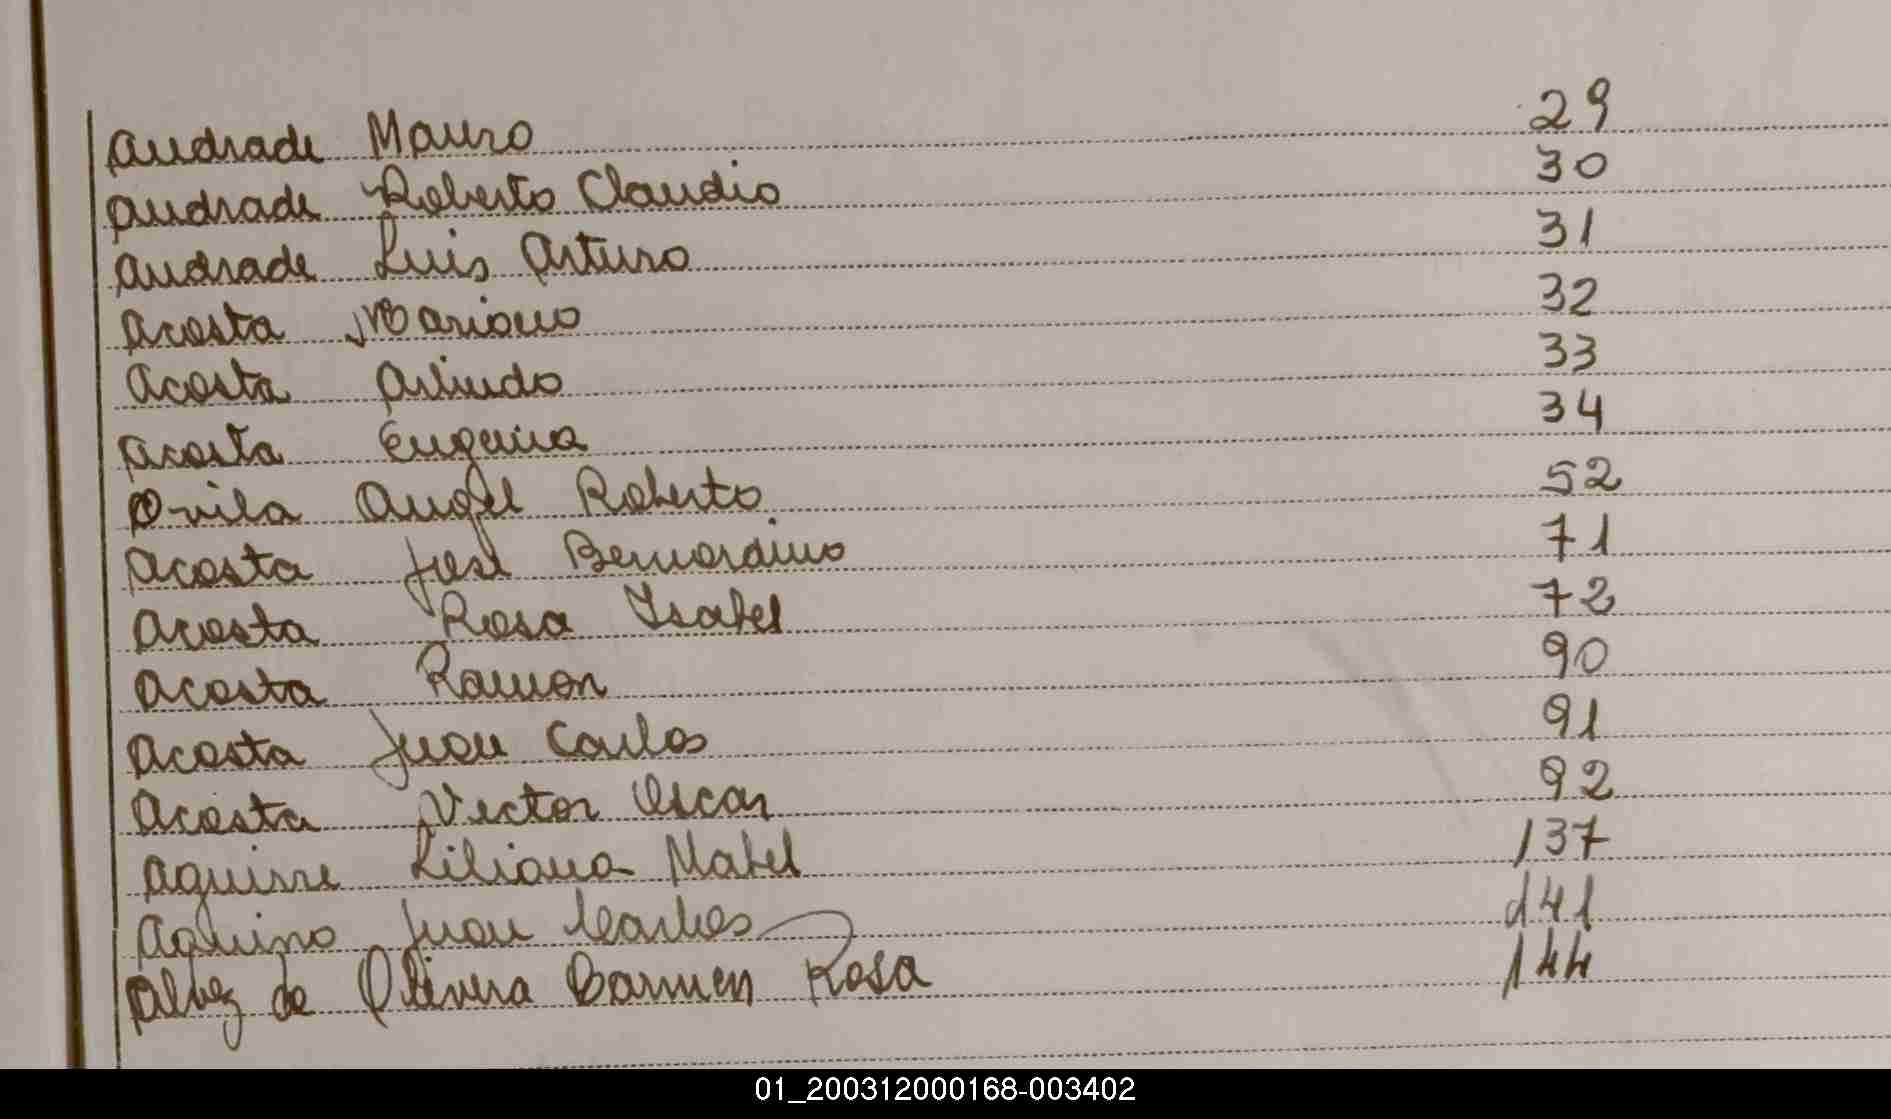 Andrade Mauro 29
Andrade Roberto Claudio 30
Andrade Luis Arturo 31
Acosta Mariano 32
Acosta Arlindo 33
Acosta Eugenia 34
Avila Angel Roberto 52
Acosta José Bernardino 71
Acosta Rosa Ysabel 72
Acosta Ramon 90
Acosta Juan Carlos 91
Acosta Victor Oscar 92
Aguirre Liliana Mabel 137
Aquino Juan Carlos 141
Alvez de Olivera Carmen Rosa 144
01_200312000168-003402